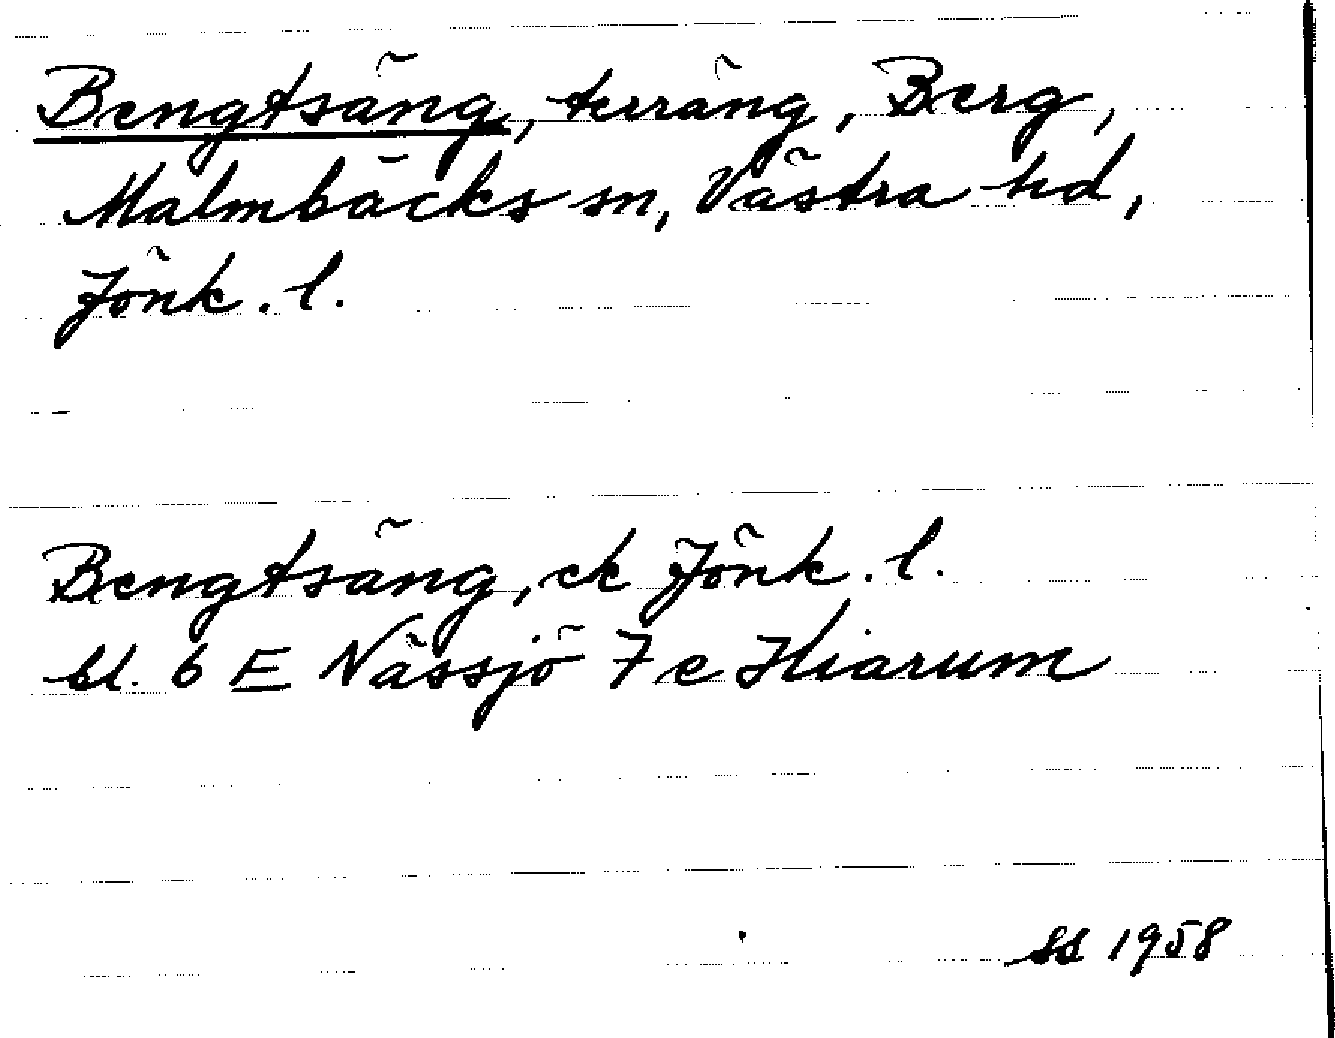 Bengtsäng, terräng, Berg,
Malmbäcks sn, Västra hd,
Jönk. l.
Bengtsäng, ek Jönk. l.
bl. 6 E Nässjö 7 c Hiarum
SS 1958